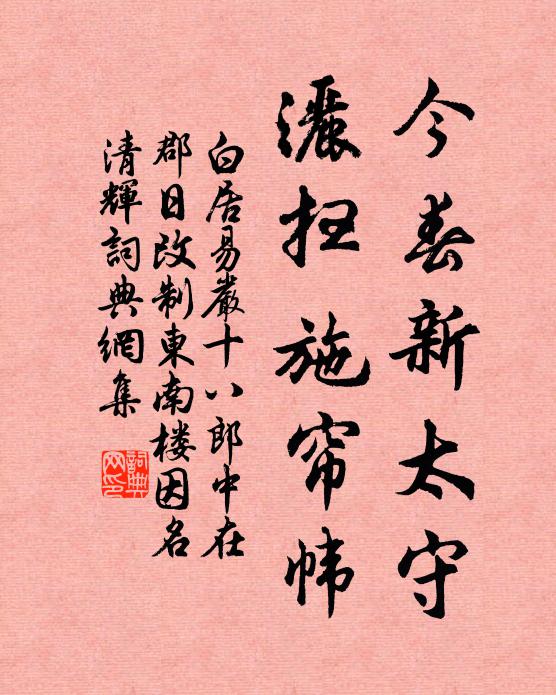 今春新太守
灑扫施帘帏
白居易嚴十八郎中在
郡日改制東南楼因名
清輝詞典網集
詞典网印